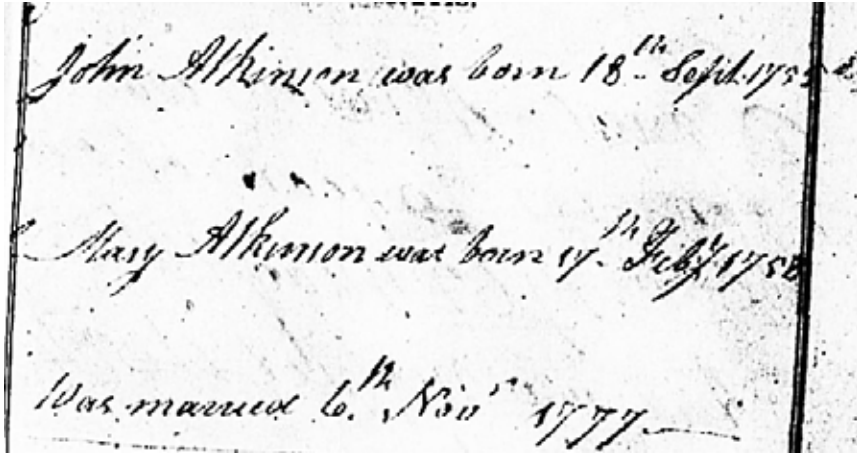 John Atkinson was born 18th Sept. 1755
Mary Atkinson was born 17th Feby 1758
Was married 6th Novr 1777